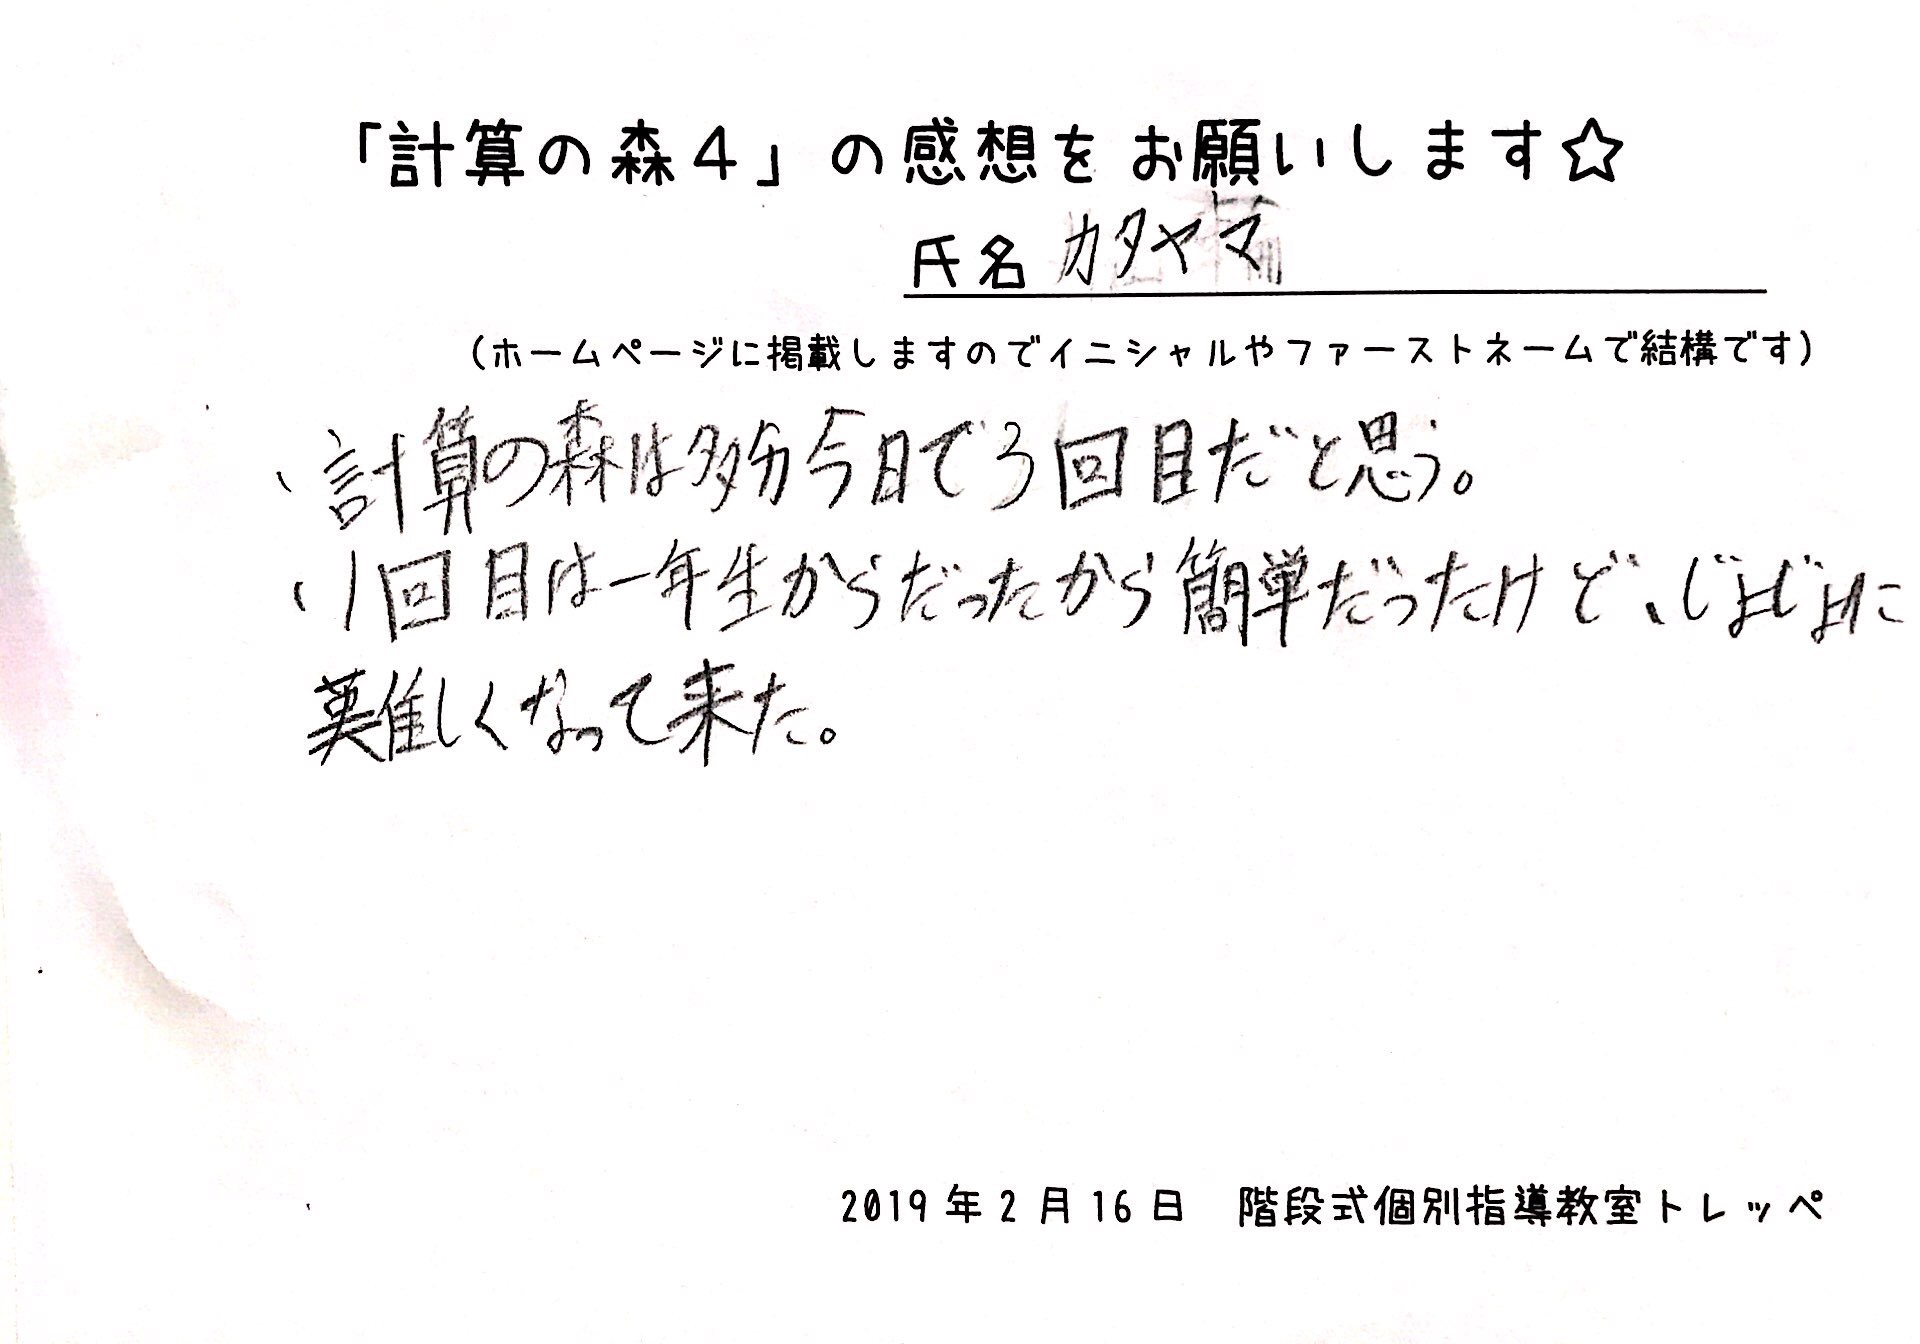 「計算の森4」の感想をお願いします☆
氏名 カタヤマ
(ホームページに掲載しますのでイニシャルやファーストネームで結構です)
、計算の森は多分今日で3回目だと思う。
、1回目は一年生からだったから簡単だったけど、じょじょに
難しくなって来た。
2019年2月16日 階段式個別指導教室トレッペ